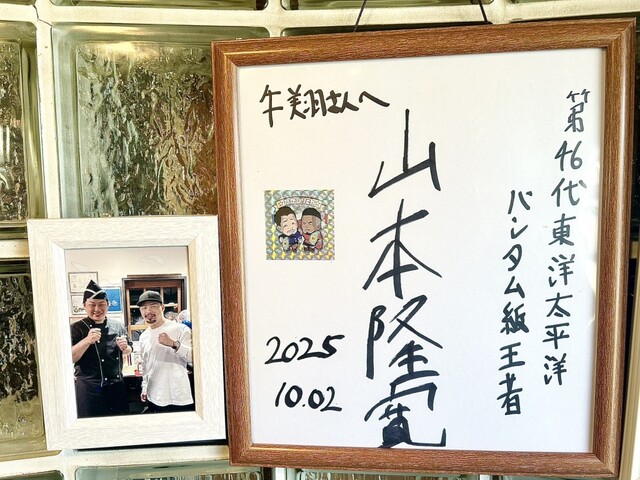 第46代東洋太平洋
バンタム級王者
山本隆寛
牛美羽さんへ
2025
10.02